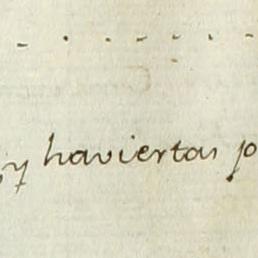 y haviertas p